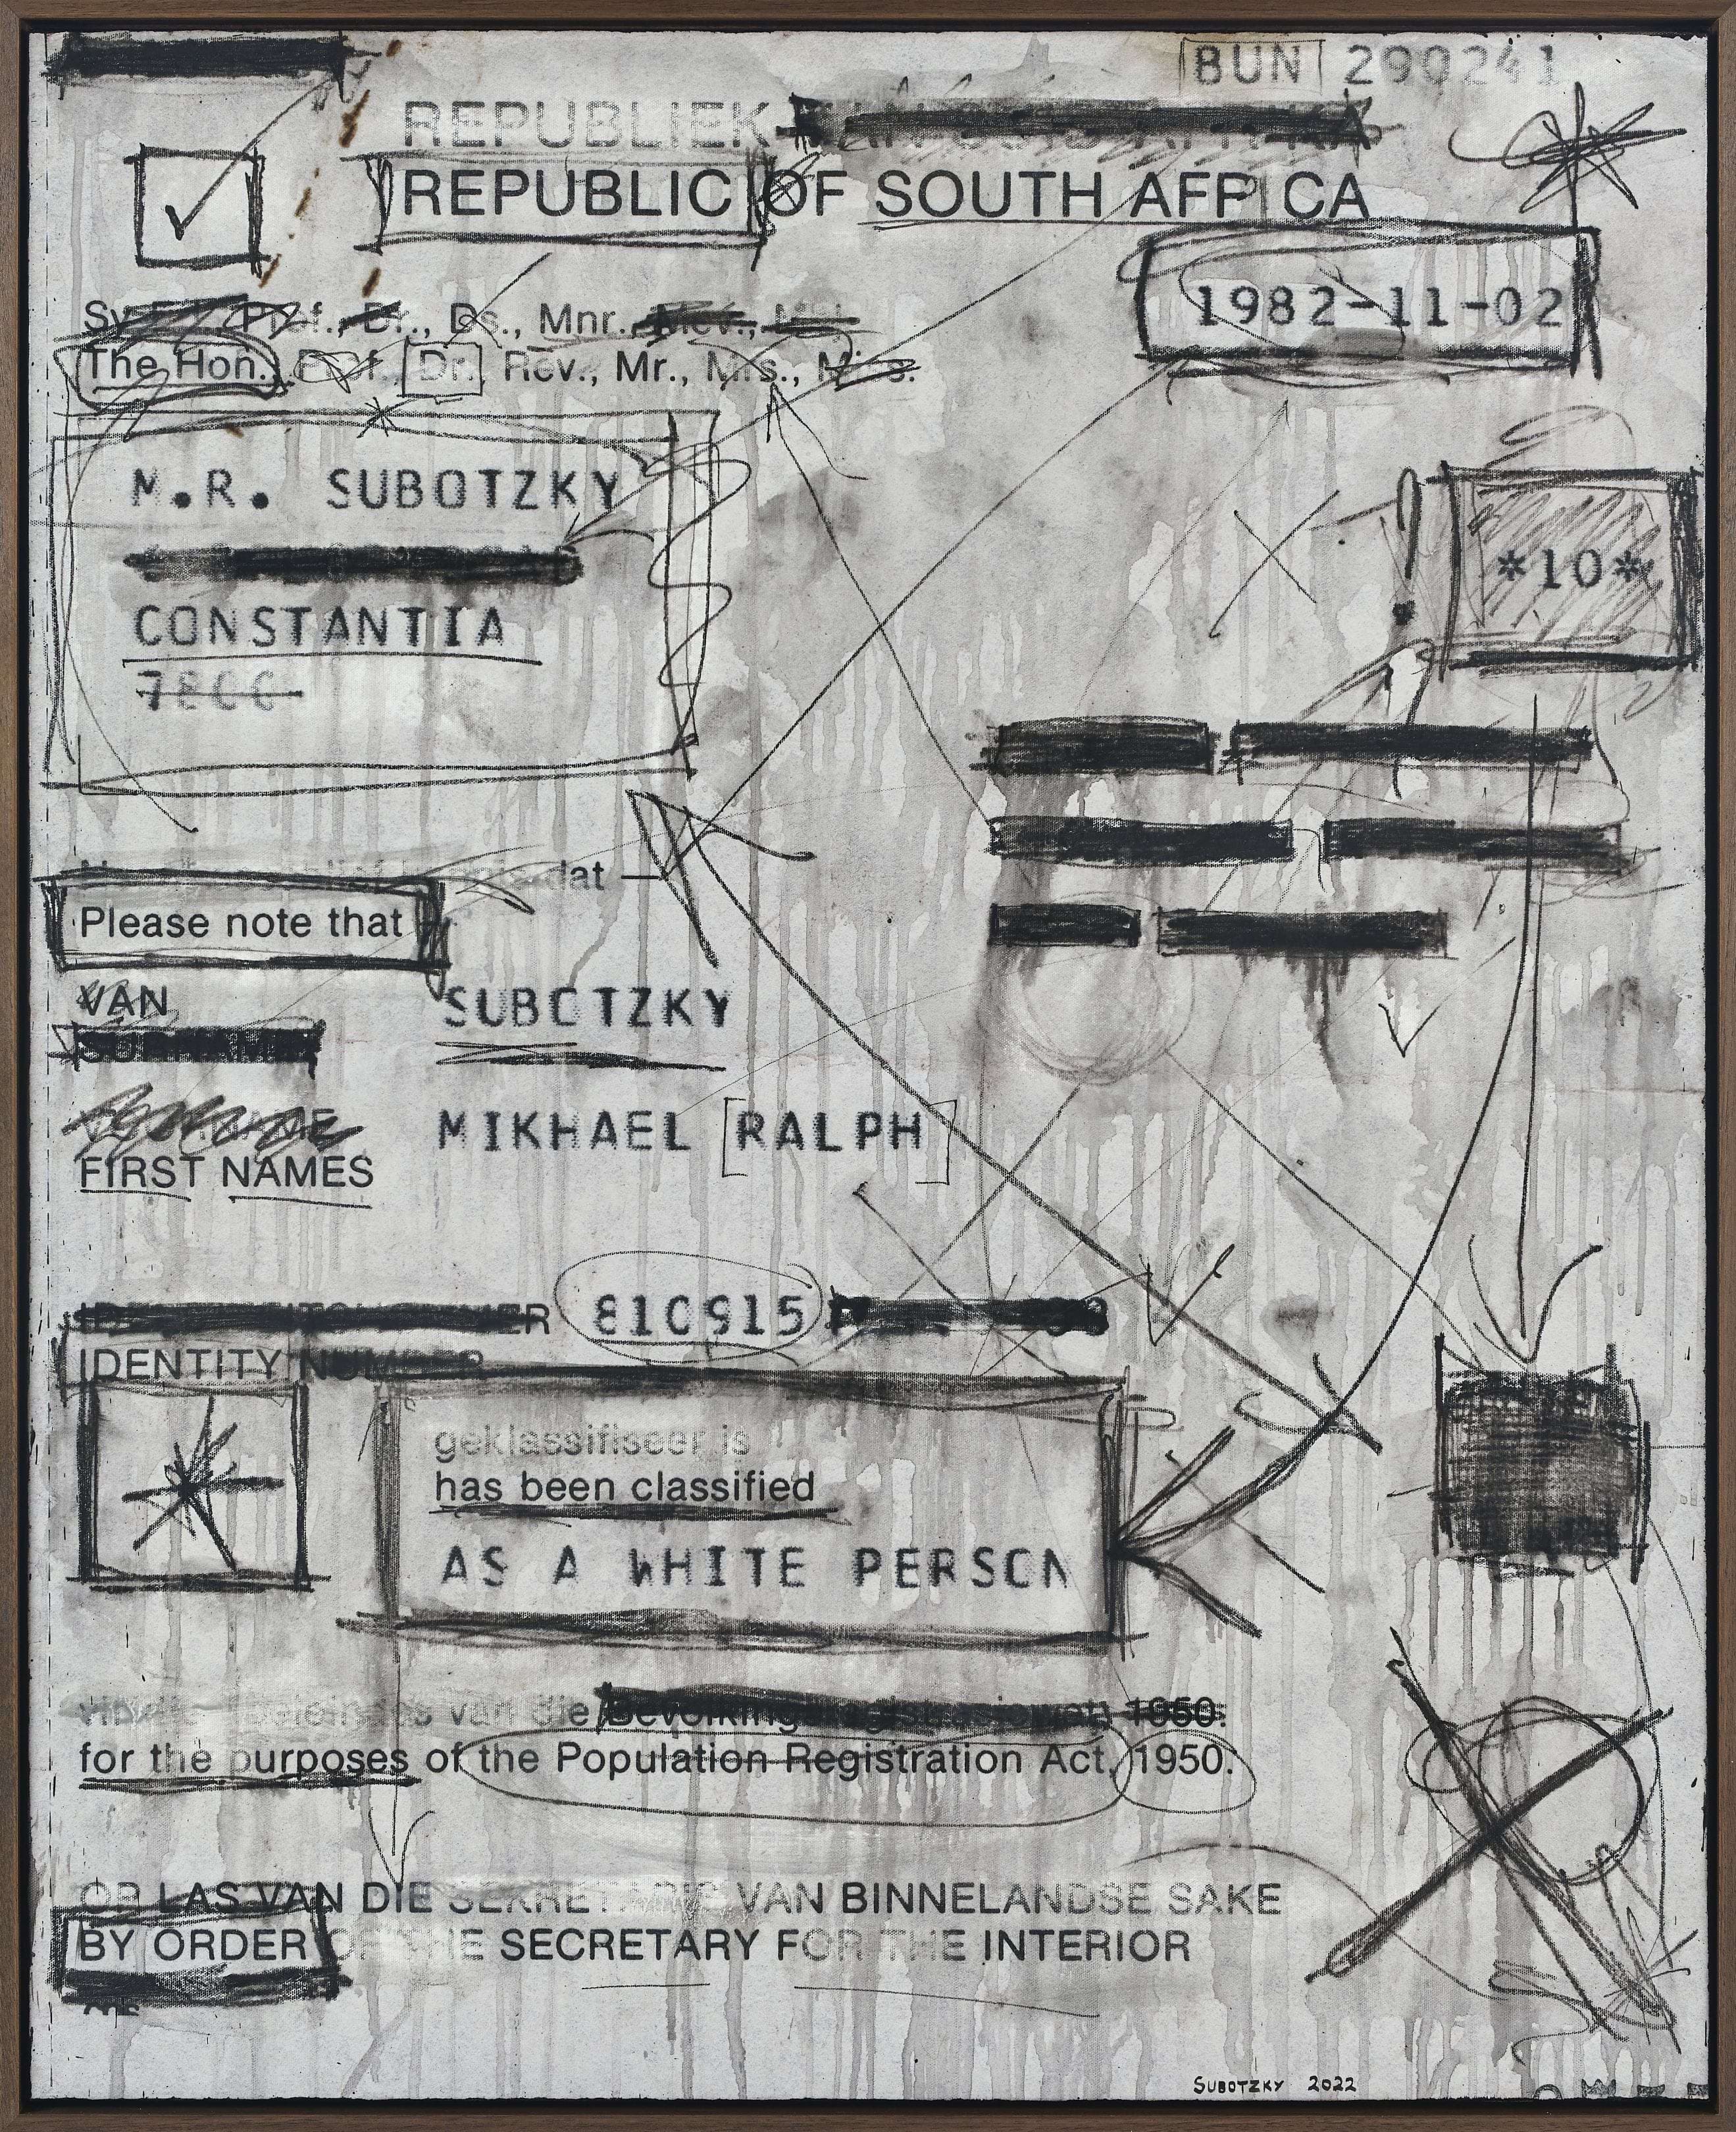 BUN 290241
REPUBLIEK
REPUBLIC OF SOUTH AFRICA
1982-11-02
Dr., Ds., Mnr.,
The Hon., Prof., Dr., Rev., Mr., Mrs., Miss.
M.R. SUBOTZKY
*10*
CONSTANTIA
7800
dat
Please note that
VAN
SUBOTZKY
MIKHAEL [RALPH]
FIRST NAMES
810915
IDENTITY NUMBER
geklassifiseer is
has been classified
AS A WHITE PERSON
van die Bevolkingsregistrasiewet, 1950.
for the purposes of the Population Registration Act, 1950.
OP LAS VAN DIE SEKRETARIS VAN BINNELANDSE SAKE
BY ORDER OF THE SECRETARY FOR THE INTERIOR
SUBOTZKY 2022